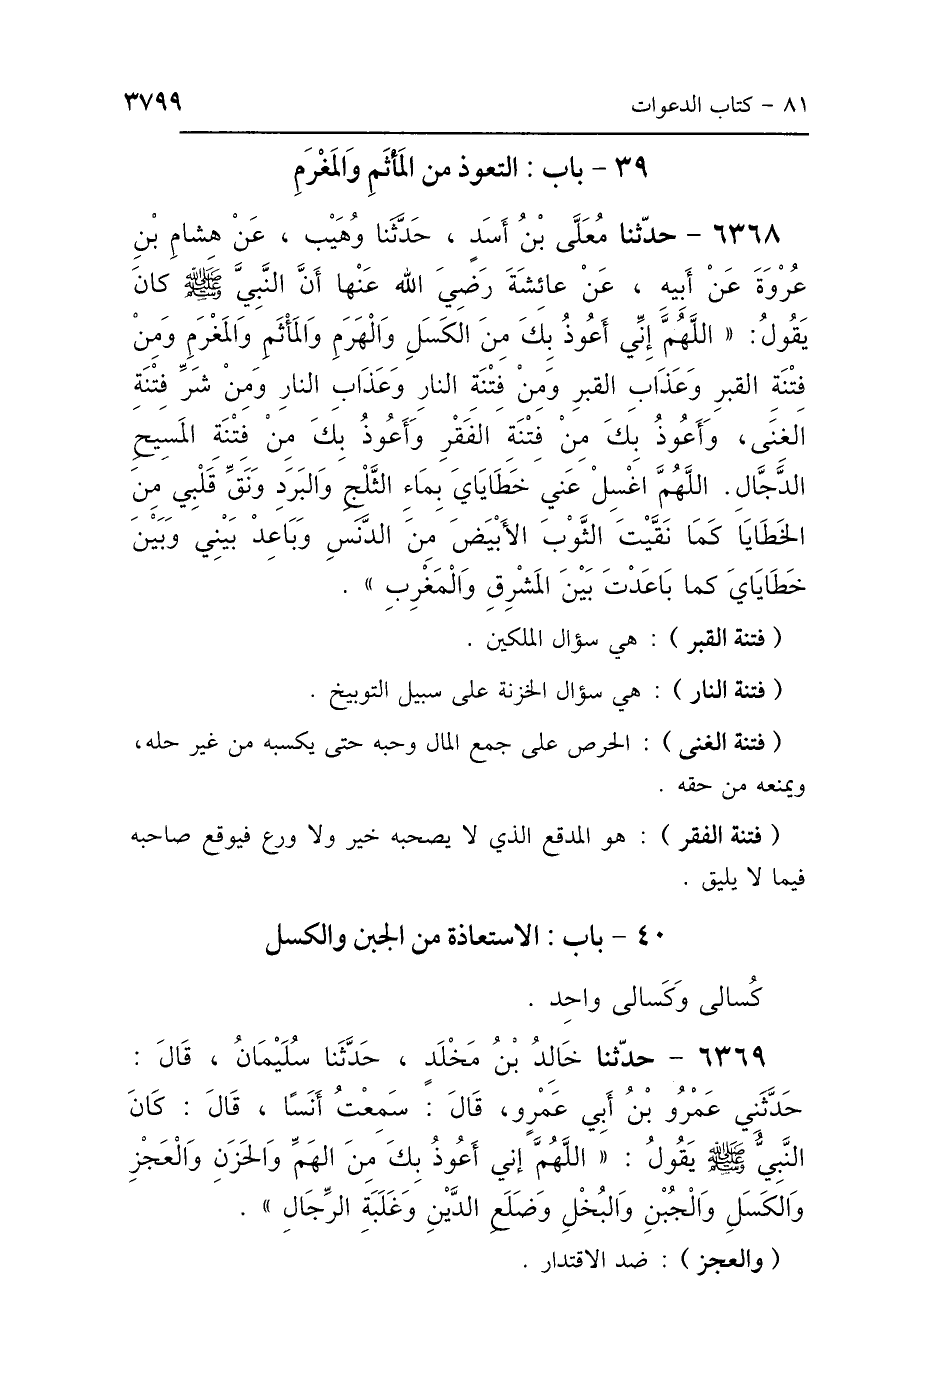 ٨١ - كتاب الدعوات ٣٧٩٩
٣٩ - باب : التعوذ من المَأْثَمِ وَالمَغْرَمِ
٦٣٦٨ - حدّثنا مُعَلَّى بْنُ أَسَدٍ ، حَدَّثَنا وُهَيْب ، عَنْ هِشامِ بْنِ
عُرْوَةَ عَنْ أَبيهِ ، عَنْ عائشَةَ رَضِيَ الله عَنْها أَنَّ النَّبِيَّ ﷺ كانَ
يَقُولُ: « اللَّهُمَّ إِنِّي أَعُوذُ بِكَ مِنَ الكَسَلِ وَالْهَرَمِ وَالمَأْثَمِ وَالمَغْرَمِ وَمِنْ
فِتْنَةِ القبرِ وَعَذَابِ القبرِ وَمِنْ فِتْنَةِ النارِ وَعَذَابِ النارِ وَمِنْ شَرِّ فِتْنَةِ
الغِنَى، وَأَعُوذُ بِكَ مِنْ فِتْنَةِ الفَقْرِ وَأَعُوذُ بِكَ مِنْ فِتْنَةِ المَسيحِ
الدَّجَّالِ. اللَّهُمَّ اغْسِلْ عَني خَطَايَايَ بِمَاءِ الثَّلْجِ وَالبَرَدِ وَنَقِّ قَلْبِي مِنَ
الخَطَايَا كَمَا نَقَّيْتَ الثَّوْبَ الأَبْيَضَ مِنَ الدَّنَسِ وَبَاعِدْ بَيْنِي وَبَيْنَ
خَطَايَايَ كما بَاعَدْتَ بَيْنَ المَشْرِقِ وَالْمَغْرِبِ » .
( فتنة القبر ) : هي سؤال الملكين .
( فتنة النار ) : هي سؤال الخزنة على سبيل التوبيخ .
( فتنة الغنى ) : الحرص على جمع المال وحبه حتى يكسبه من غير حله،
ويمنعه من حقه .
( فتنة الفقر ) : هو المدقع الذي لا يصحبه خير ولا ورع فيوقع صاحبه
فيما لا يليق .
٤٠ - باب : الاستعاذة من الجبن والكسل
كُسالى وَكَسالى واحِد .
٦٣٦٩ - حدّثنا خَالِدُ بْنُ مَخْلَدٍ ، حَدَّثَنا سُلَيْمَانُ ، قَالَ :
حَدَّثَنِي عَمْرُو بْنُ أَبي عَمْرٍو، قَالَ : سَمِعْتُ أَنَسًا ، قَالَ : كَانَ
النَّبِيُّ ﷺ يَقُولُ : « اللَّهُمَّ إني أَعُوذُ بِكَ مِنَ الهَمِّ وَالحَزَنِ وَالْعَجْزِ
وَالكَسَلِ وَالْجُبْنِ وَالبُخْلِ وَضَلَعِ الدَّيْنِ وَغَلَبَةِ الرِّجَالِ » .
( والعجز ) : ضد الاقتدار .